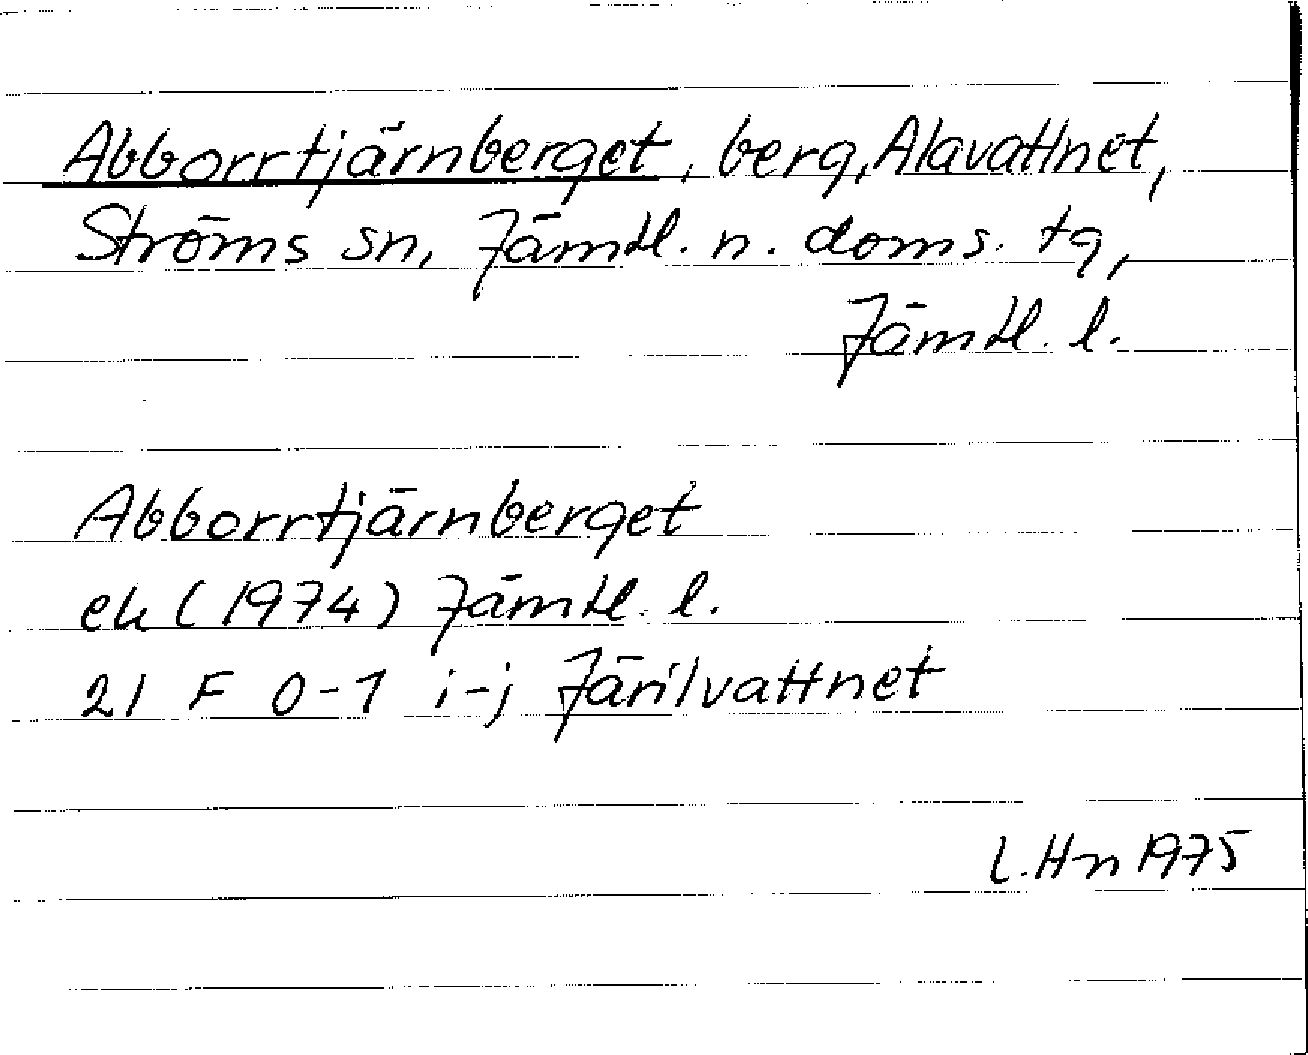 Abborrtjärnberget, berg, Alavattnet,
Ströms sn, Jämtl. n. doms. tg,
Jämtl. l.
Abborrtjärnberget
ek (1974) Jämtl. l.
21 F 0-1 i-j Järilvattnet
L. Hn 1975